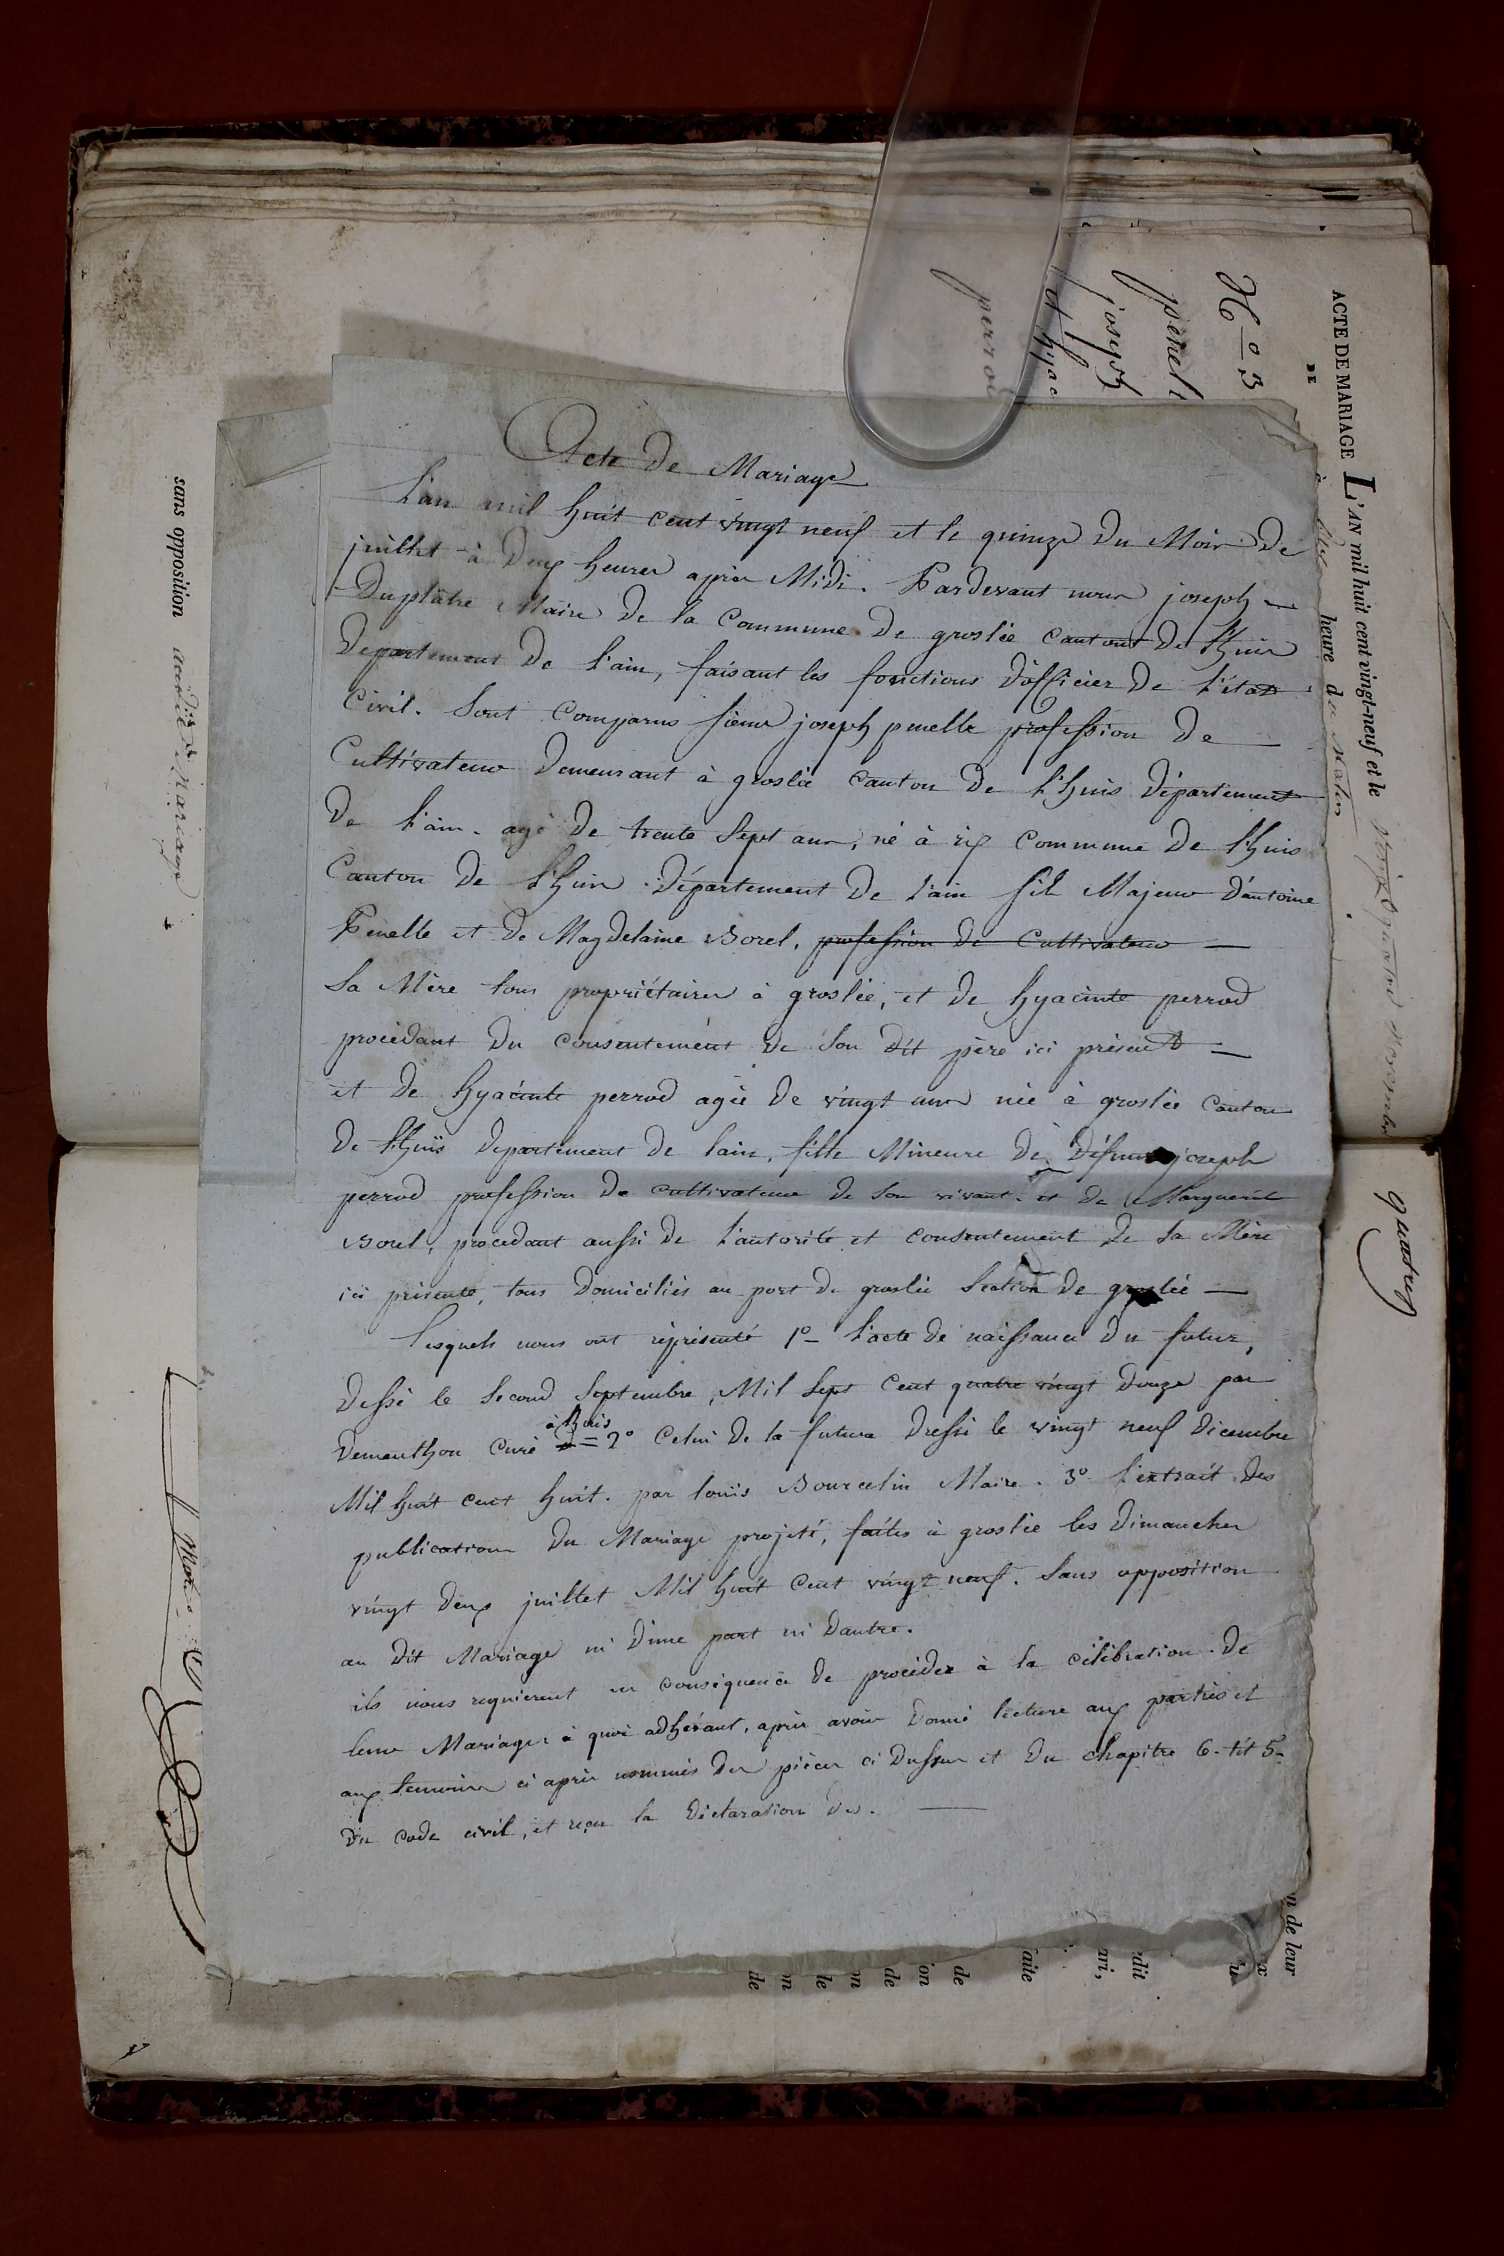 Acte de Mariage
L'an mil huit cent vingt neuf et le quinze du Mois de
juillet à deux heures après Midi. Pardevant nous joseph
Duplâtre Maire de la Commune de groslée Canton de Lhuis
Département de l'ain, faisant les fonctions d'officier de l'état
Civil. Sont Comparus sieur joseph penelle profession de
Cultivateur demeurant à groslée Canton de L'huis Département
De l'ain. agé de trente sept ans, né à rix Commune de L'huis
Canton de L'huis Département de l'ain fils Majeur d'antoine
Penelle et de Magdelaine Borel, profession de Cultivateur
Sa Mère tous propriétaires à groslée, et de hyacinte perrod
procédant du Consentement de Son dit père ici présent
et de hyacinte perrod agée de vingt ans née à groslée Canton
De Lhuis département de lain, fille Mineure de défunt joseph
perrod profession de cultivateur de son vivant. et de Marguerite
Borel, procedant aussi de l'autorité et consentement de sa Mère
ici présente, tous domiciliés au port de groslée Section de groslée
Lesquels nous ont représenté 1º- l'acte de naissance du futur,
dessé le Second Septembre, Mil Sept Cent quatre vingt douze par
Dementhon Curé à Lhuis = 2º Celui de la future dressé le vingt neuf décembre
Mil huit cent huit. par louis Bourcelin Maire. 3º l'extrait des
publications du Mariage projeté, faites à groslée les dimanches
vingt deux juillet Mil huit Cent vingt neuf. Sans opposition
au dit Mariage ni d'une part ni dautre.
ils nous requierent en conséquence de procéder à la célébration de
leur Mariage: à quoi adhérant, après avoir donné lecture aux parties et
aux temoins ci après nommés des pièces ci dessus et du chapitre 6. tit 5.
du code civil, et reçu la déclaration des.
Nº 3
penell
joseph
et hyac
perrod
ACTE DE MARIAGE
DE
L'AN mil huit cent vingt-neuf et le vingt quatre novembre
à heure du Matin
quatre
sans opposition audit Mariage
n de leur
dit
ari,
faite
de
ion
de
on
le
on
de